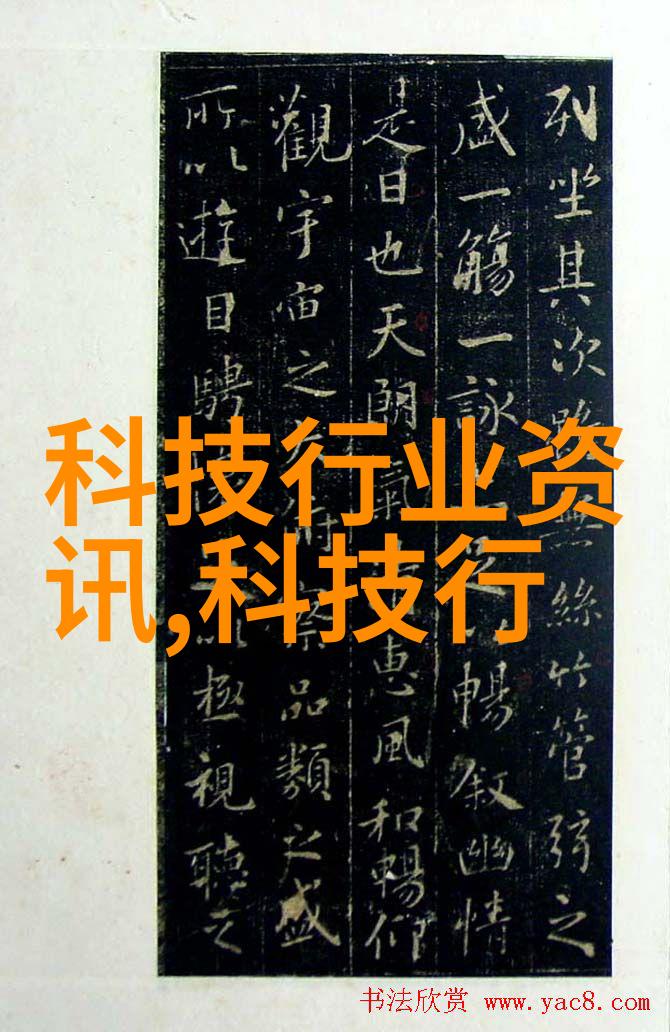 列坐其次雖無絲竹管弦之
盛一觴一詠足以暢叙幽情
是日也天朗氣惠風和暢仰
觀宇宙之俯察品類之盛
所以遊目騁極視聽之
科技行业资
讯,科技行
书法欣赏 www.yac8.com